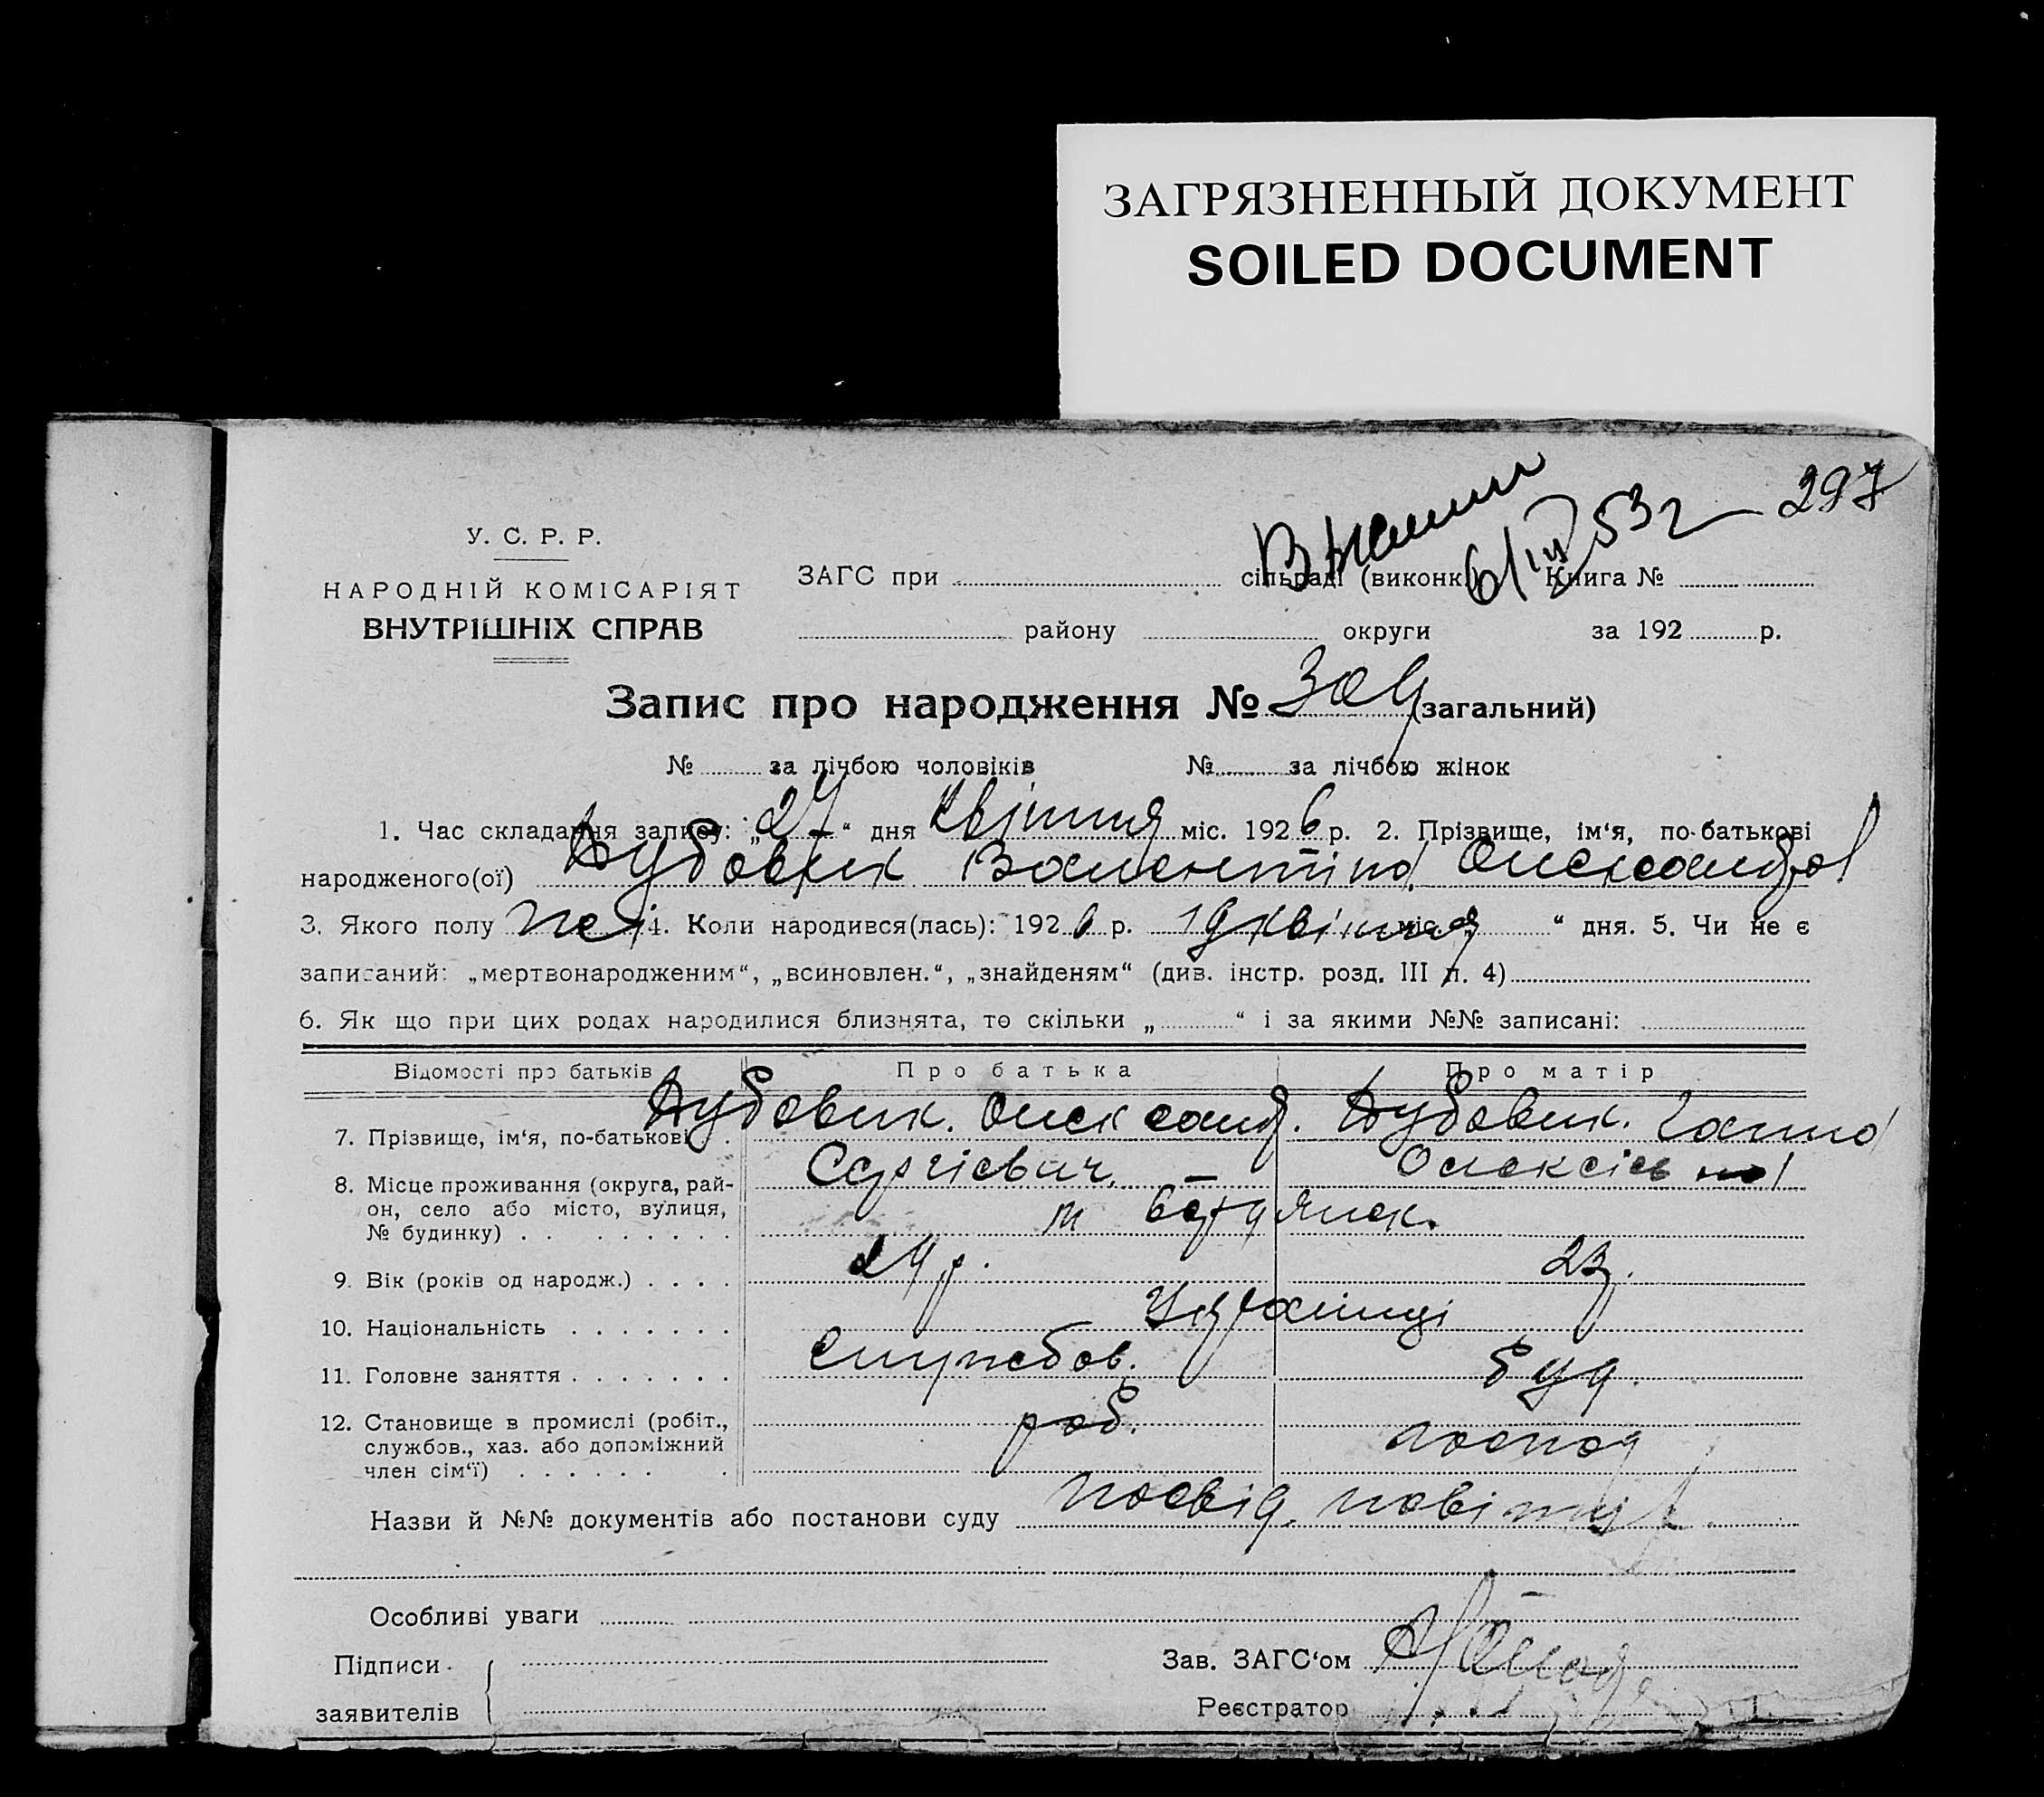 ЗАГРЯЗНЕННЫЙ ДОКУМЕНТ
SOILED DOCUMENT
297
6/IV 53 г
У. С. Р. Р.
НАРОДНІЙ КОМІСАРІЯТ
ВНУТРІШНІХ СПРАВ
ЗАГС при сільраді (виконк. Книга №
району округи за 192 р.
Запис про народження № 304 (загальний)
№ за лічбою чоловіків № за лічбою жінок
1. Час складання запису: „24“ дня квітня міс. 1926 р. 2. Прізвище, ім‘я, по-батькові
народженого(ої) Дубовик Валентіна Олександрів
3. Якого полу жі 4. Коли народився(лась): 1926 р. 19 квітня міс. „ “ дня. 5. Чи не є
записаний: „мертвонародженим“, „всиновлен.“, „знайденям“ (див. інстр. розд. III п. 4)
6. Як що при цих родах народилися близнята, то скільки „ “ і за якими №№ записані:
Відомості про батьків Про батька Про матір
7. Прізвище, ім‘я, по-батькові Дубовик. Олександ. Дубовик. Ганна
Сергієвич. Олексіевна
8. Місце проживання (округа, рай-
он, село або місто, вулиця,
№ будинку) м Бердянск.
9. Вік (років од народж.) 24 р. 23.
10. Національність Українці
11. Головне заняття службов. буд.
12. Становище в промислі (робіт.,
службов., хаз. або допоміжний
член сім‘ї) роб. господ
Назви й №№ документів або постанови суду посвід. повітух
Особливі уваги
Підписи
заявителів
Зав. ЗАГС‘ом
Реєстратор